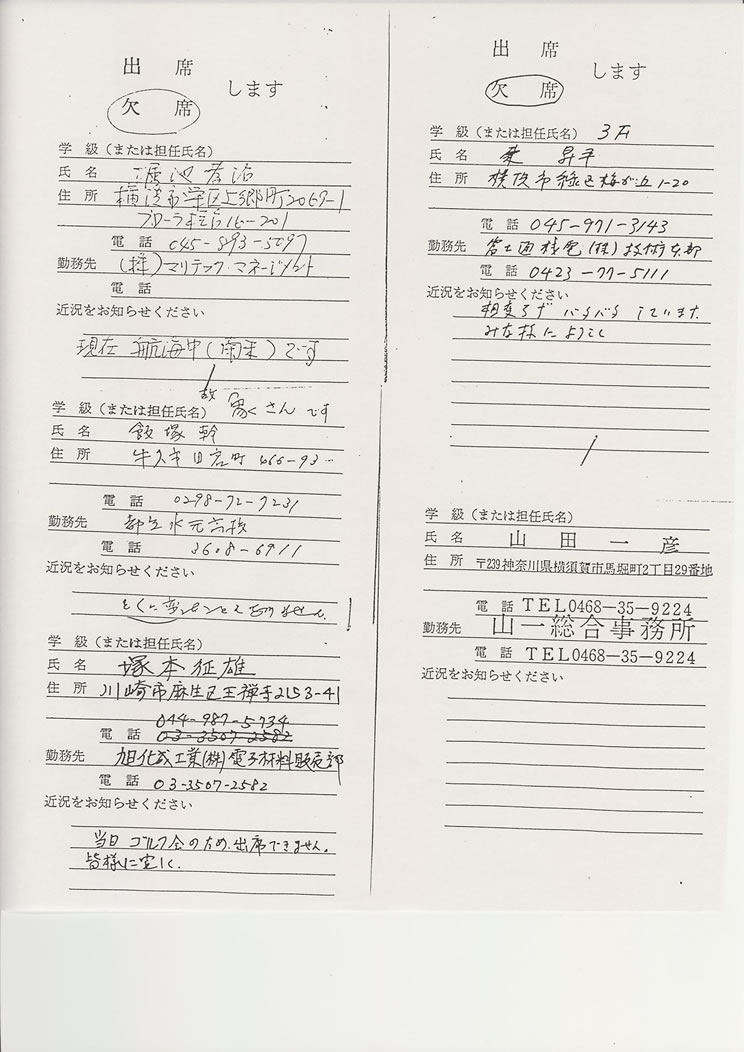 出席
欠席 します
学級(または担任氏名)
氏名
住所 横浜市栄区上郷町2069-1
16-201
電話 045-893-5097
勤務先 (株)マリテック・マネージメント
電話
近況をお知らせください
現在 航海中( )です
学級(または担任氏名) さんです
氏名 飯塚 幹
住所 牛久市 町 466-93
電話 0298-72-7231
勤務先 都立水元高校
電話 3608-6911
近況をお知らせください
とくに ありません。
学級(または担任氏名)
氏名 塚本征雄
住所 川崎市麻生区王禅寺2153-41
044-987-5734
電話 03-3507-2582
勤務先 旭化成工業(株)電子材料販売部
電話 03-3507-2582
近況をお知らせください
当日 ゴルフ会のため、出席できません。
皆様に宜しく。
出席
欠席 します
学級(または担任氏名) 3F
氏名 昇平
住所 横浜市緑区梅が丘1-20
電話 045-971-3143
勤務先 富士通 (株)技術本部
電話 0423-77-5111
近況をお知らせください
相変らず バタバタ しています。
みな様によろしく
学級(または担任氏名)
氏名 山田一彦
住所 〒239神奈川県横須賀市馬堀町2丁目29番地
電話 TEL0468-35-9224
勤務先 山一総合事務所
電話 TEL0468-35-9224
近況をお知らせください